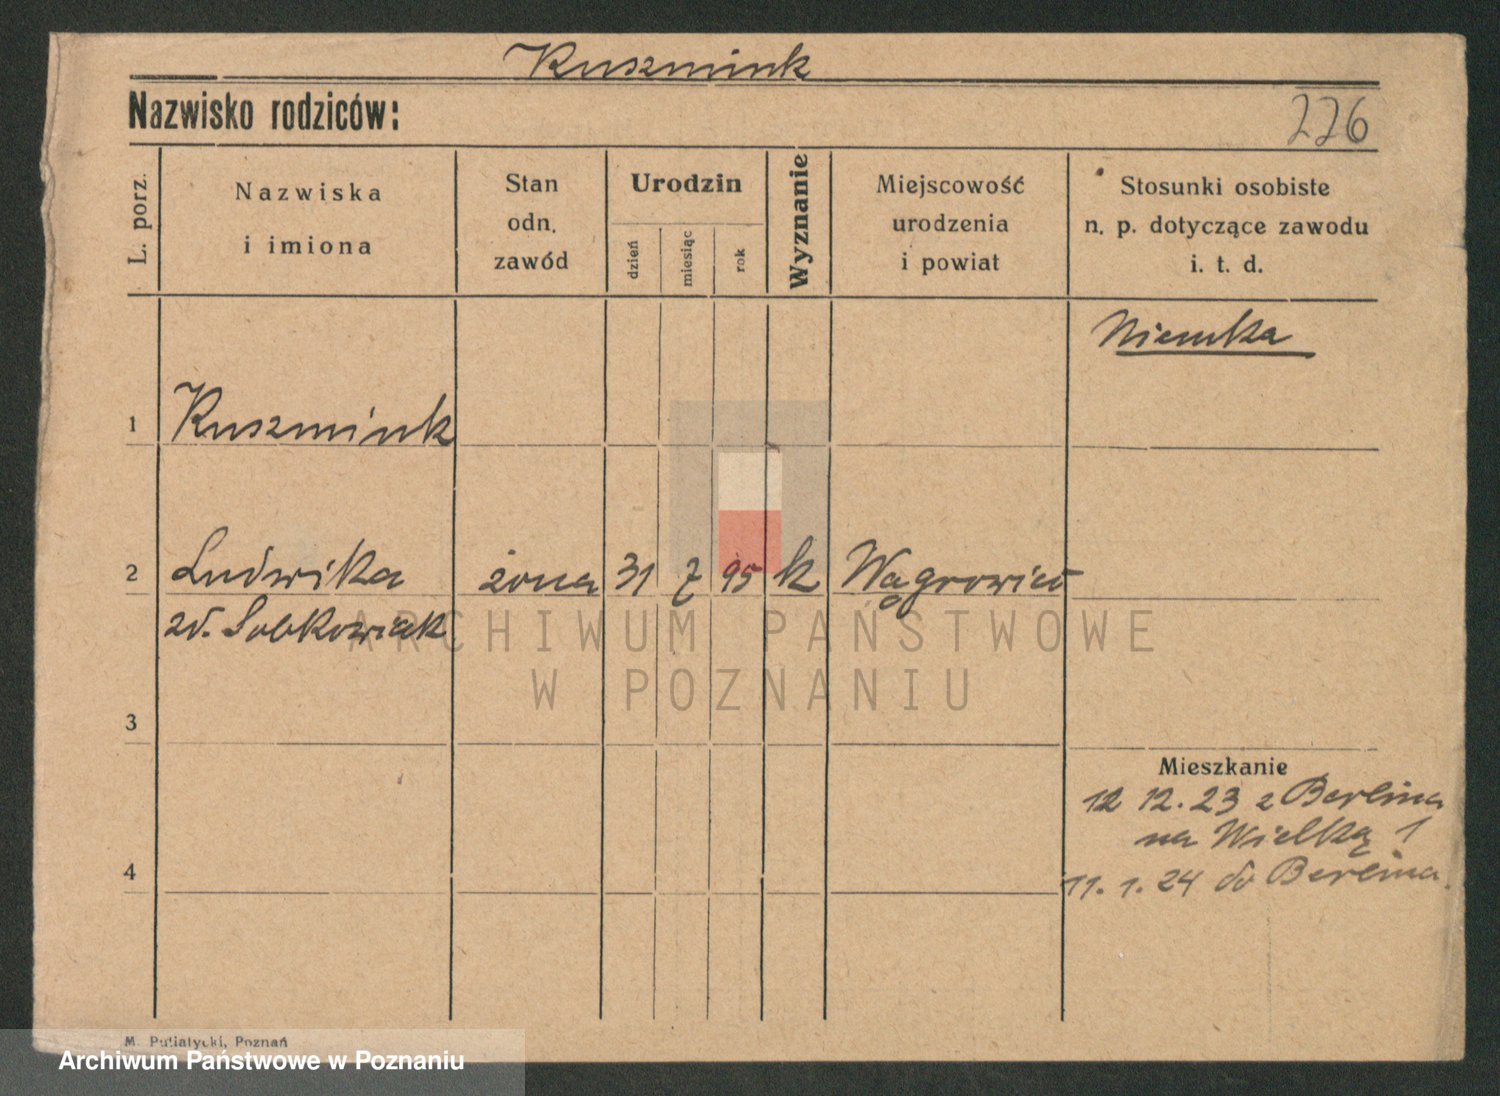 Kuszmink
Nazwisko rodziców:
226
L. porz.
Nazwiska
i imiona
Stan
odn.
zawód
Urodzin
dzień
miesiąc
rok
Wyznanie
Miejscowość
urodzenia
i powiat
Stosunki osobiste
n. p. dotyczące zawodu
i. t. d.
Niemka
1 Kuszmink
2 Ludwika żona 31 7 95 k Wągrowiec
zd. Sobkowiak
ARCHIWUM PAŃSTWOWE
W POZNANIU
3
Mieszkanie
12 12. 23 z Berlina
na Wielką 1
4
11. 1. 24 do Berlina.
M. Putiatycki, Poznań
Archiwum Państwowe w Poznaniu